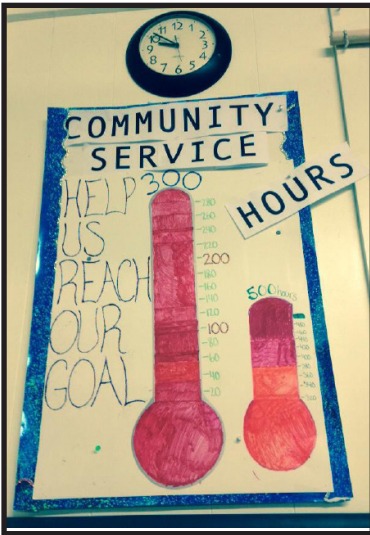 12
1
2
3
4
5
6
7
8
9
10
11
COMMUNITY
SERVICE
HOURS
HELP
US
REACH
OUR
GOAL
300
280
260
240
220
200
180
160
140
120
100
80
60
40
20
500 hours